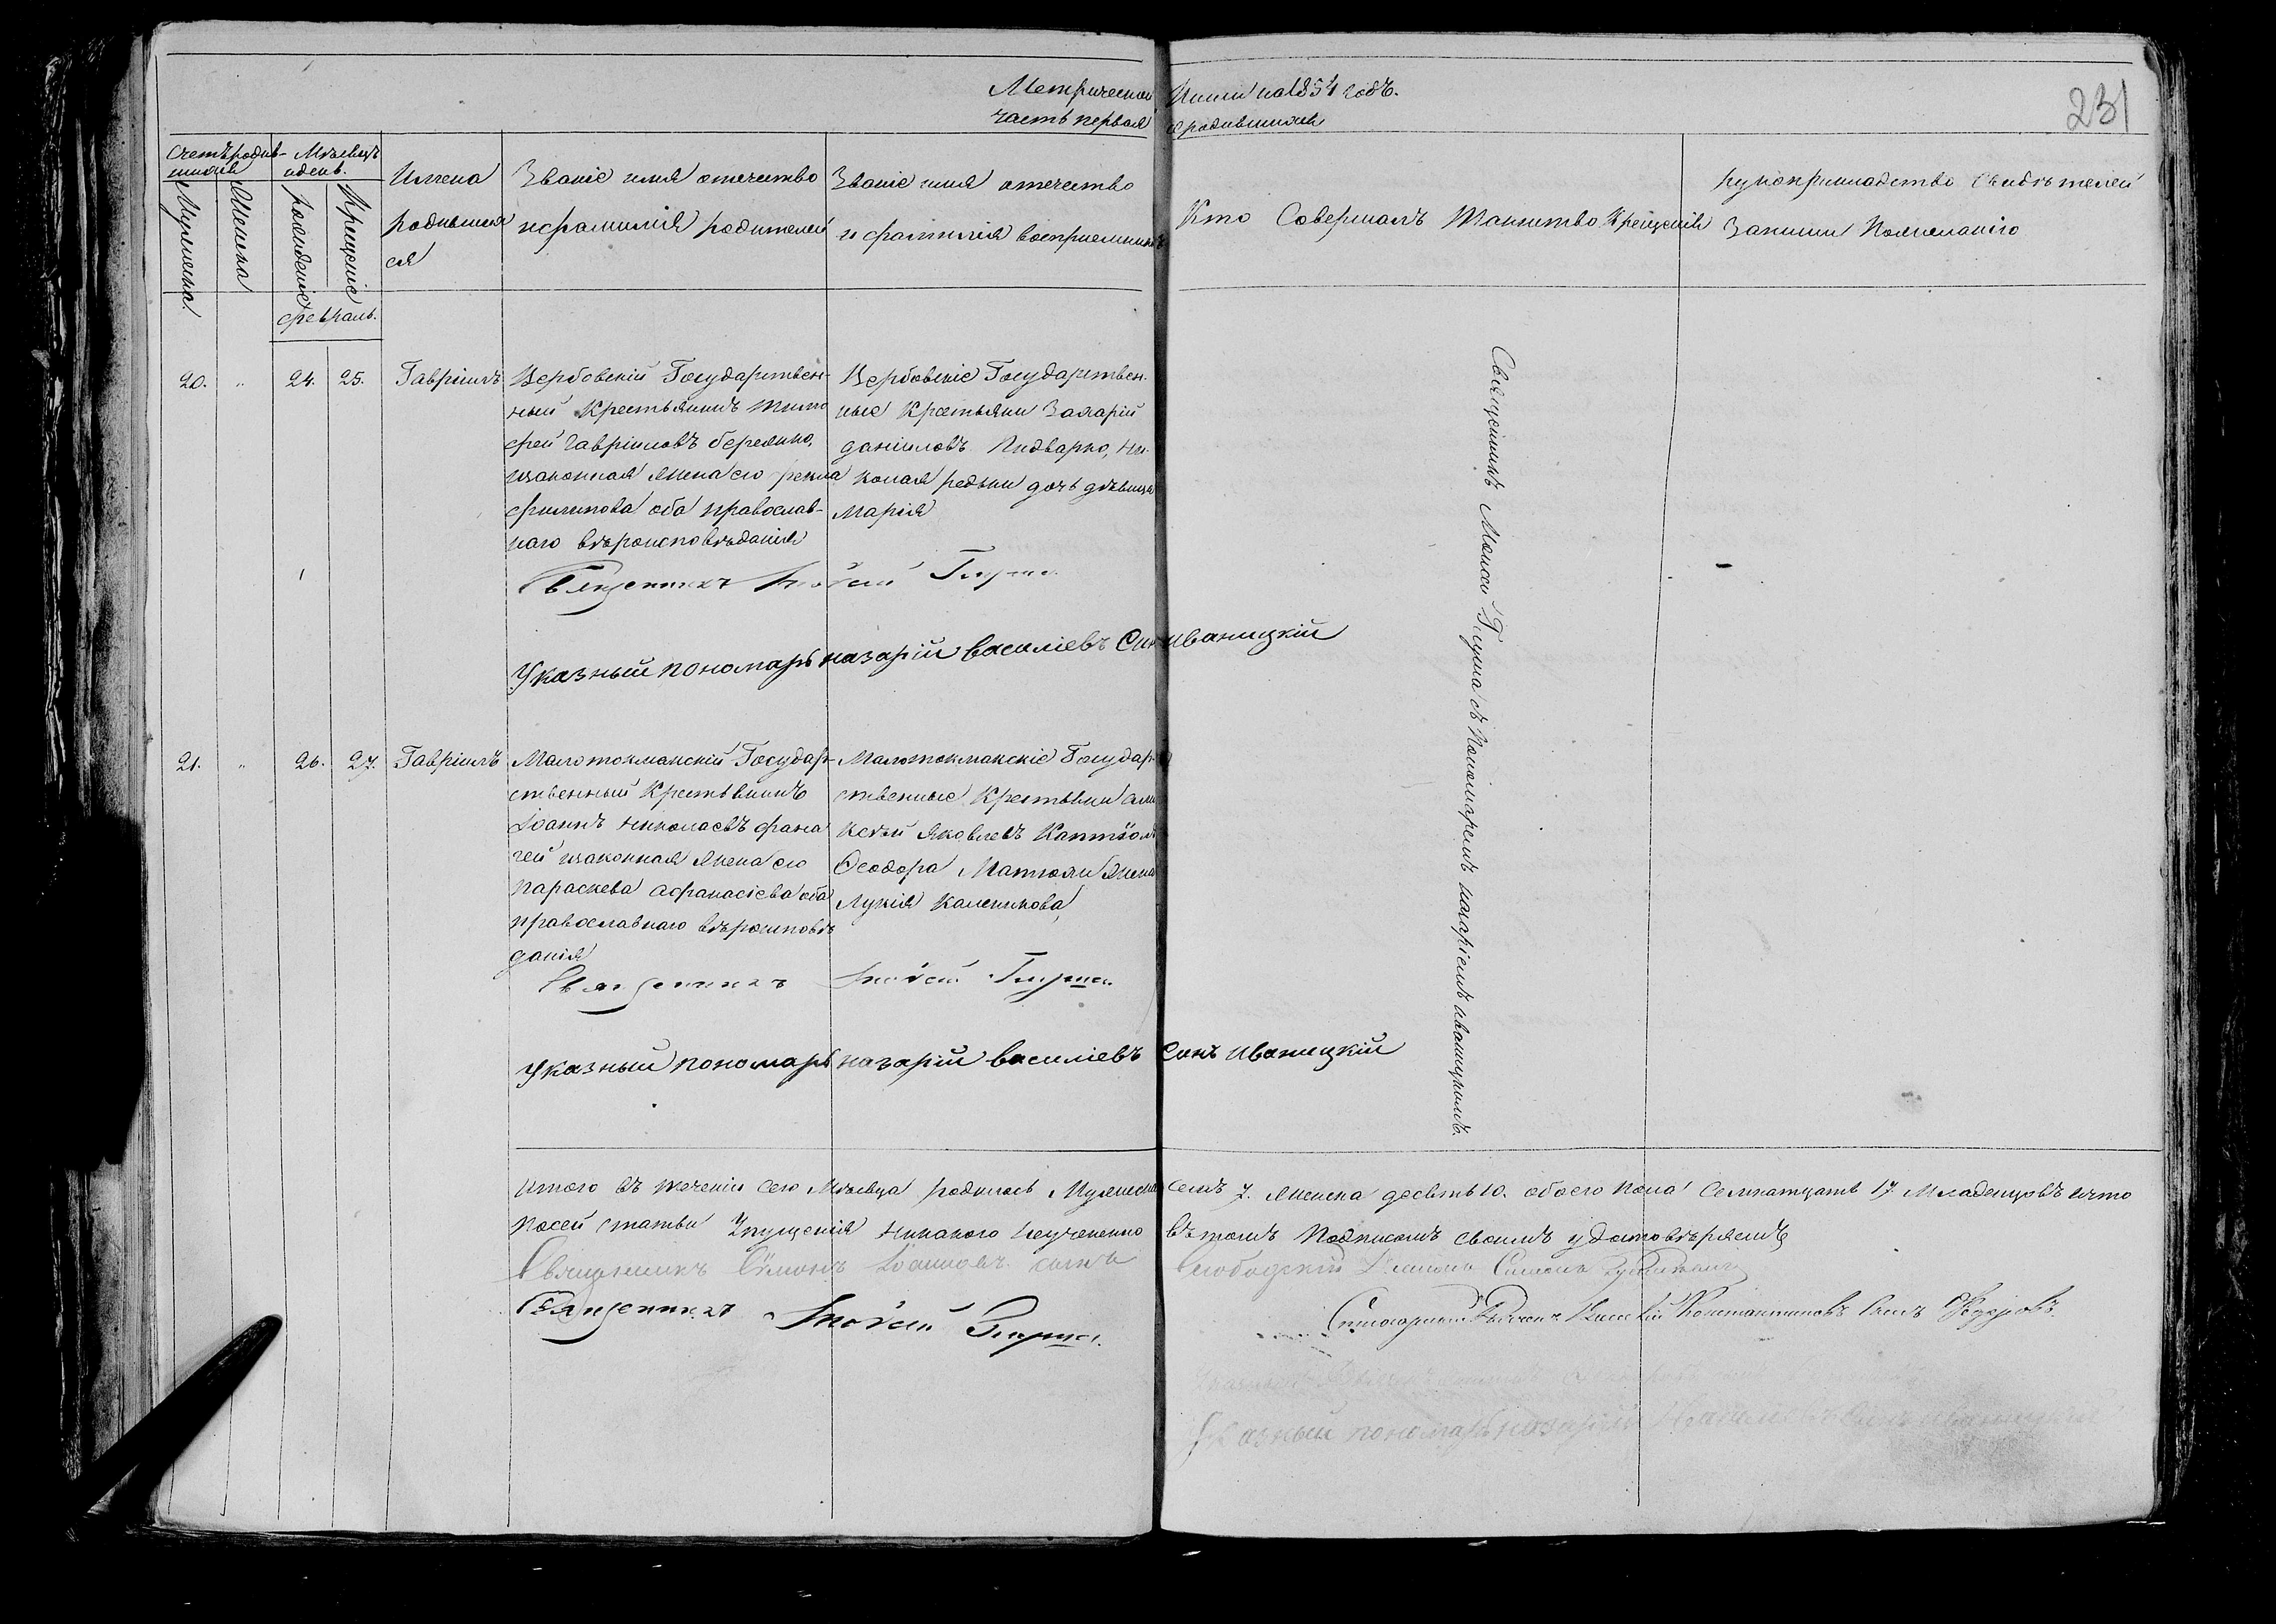 Метрической Книги на 1854 годъ.
231
часть первая о родившихся
Счетъ родив-
шихся
Мужеска
Женска
Мѣсяцъ
и день.
рожденіе
Крещеніе
Имена
родивших
ся
Званіе имя отечество
и фамилія родителей
Званіе имя отечество
и фамилія воспріемников
Кто Совершалъ Таинство Крещенія
рукоприкладство Свидѣтелей
Записи По желанію
февраль.
20. " 24. 25. Гавріилъ
Вербовскій Государствен-
ный Крестьянинъ Тимо
фей Гавріиловъ бережко,
и законная Жена его
филипова оба православ-
наго вѣроисповѣданія
Вербовскіе Государствен-
ные Крестьяни Захарій
даніиловъ Пидварко, Ни-
колая редьки дочь дѣвица
Марія
Священникъ Моѵсей Гирша
Указный пономарь назарій василіевъ Син Иваницкій
21. " 26. 27. Гавріилъ
Малотокмакскій Государ-
ственный Крестьянинъ
Іоаннъ Николаевъ фана
гей и законная Жена его
Параскева афанасіева оба
православнаго вѣроисповѣ
данія
Малотокмакскіе Государ
ственные Крестьяни
Яковлевъ
Ѳеодора Жена
Лукія Каленикова
Священникъ Моѵсей Гирша
Указный пономарь назарій василіевъ Синъ Иваницкій
Священникъ Моисей Гирша съ Пономаремъ назаріемъ иваницкимъ.
Итого въ теченіи Сего Мѣсяца родилось Мужеска Семъ 7. Женска десять 10. обоего Пола Семнатцать 17 Младенцовъ и что
По сей Статьи Упущенія Никакого Неучененно въ томъ Подписомъ своимъ удостовѣряемъ
Священникъ Сѵмонъ Іоанновъ сынъ Слободскій
Священникъ Моѵсей Гирша.
Константиновъ Синъ
Указный пономарь назарій Василіевъ Синъ Иваницкій